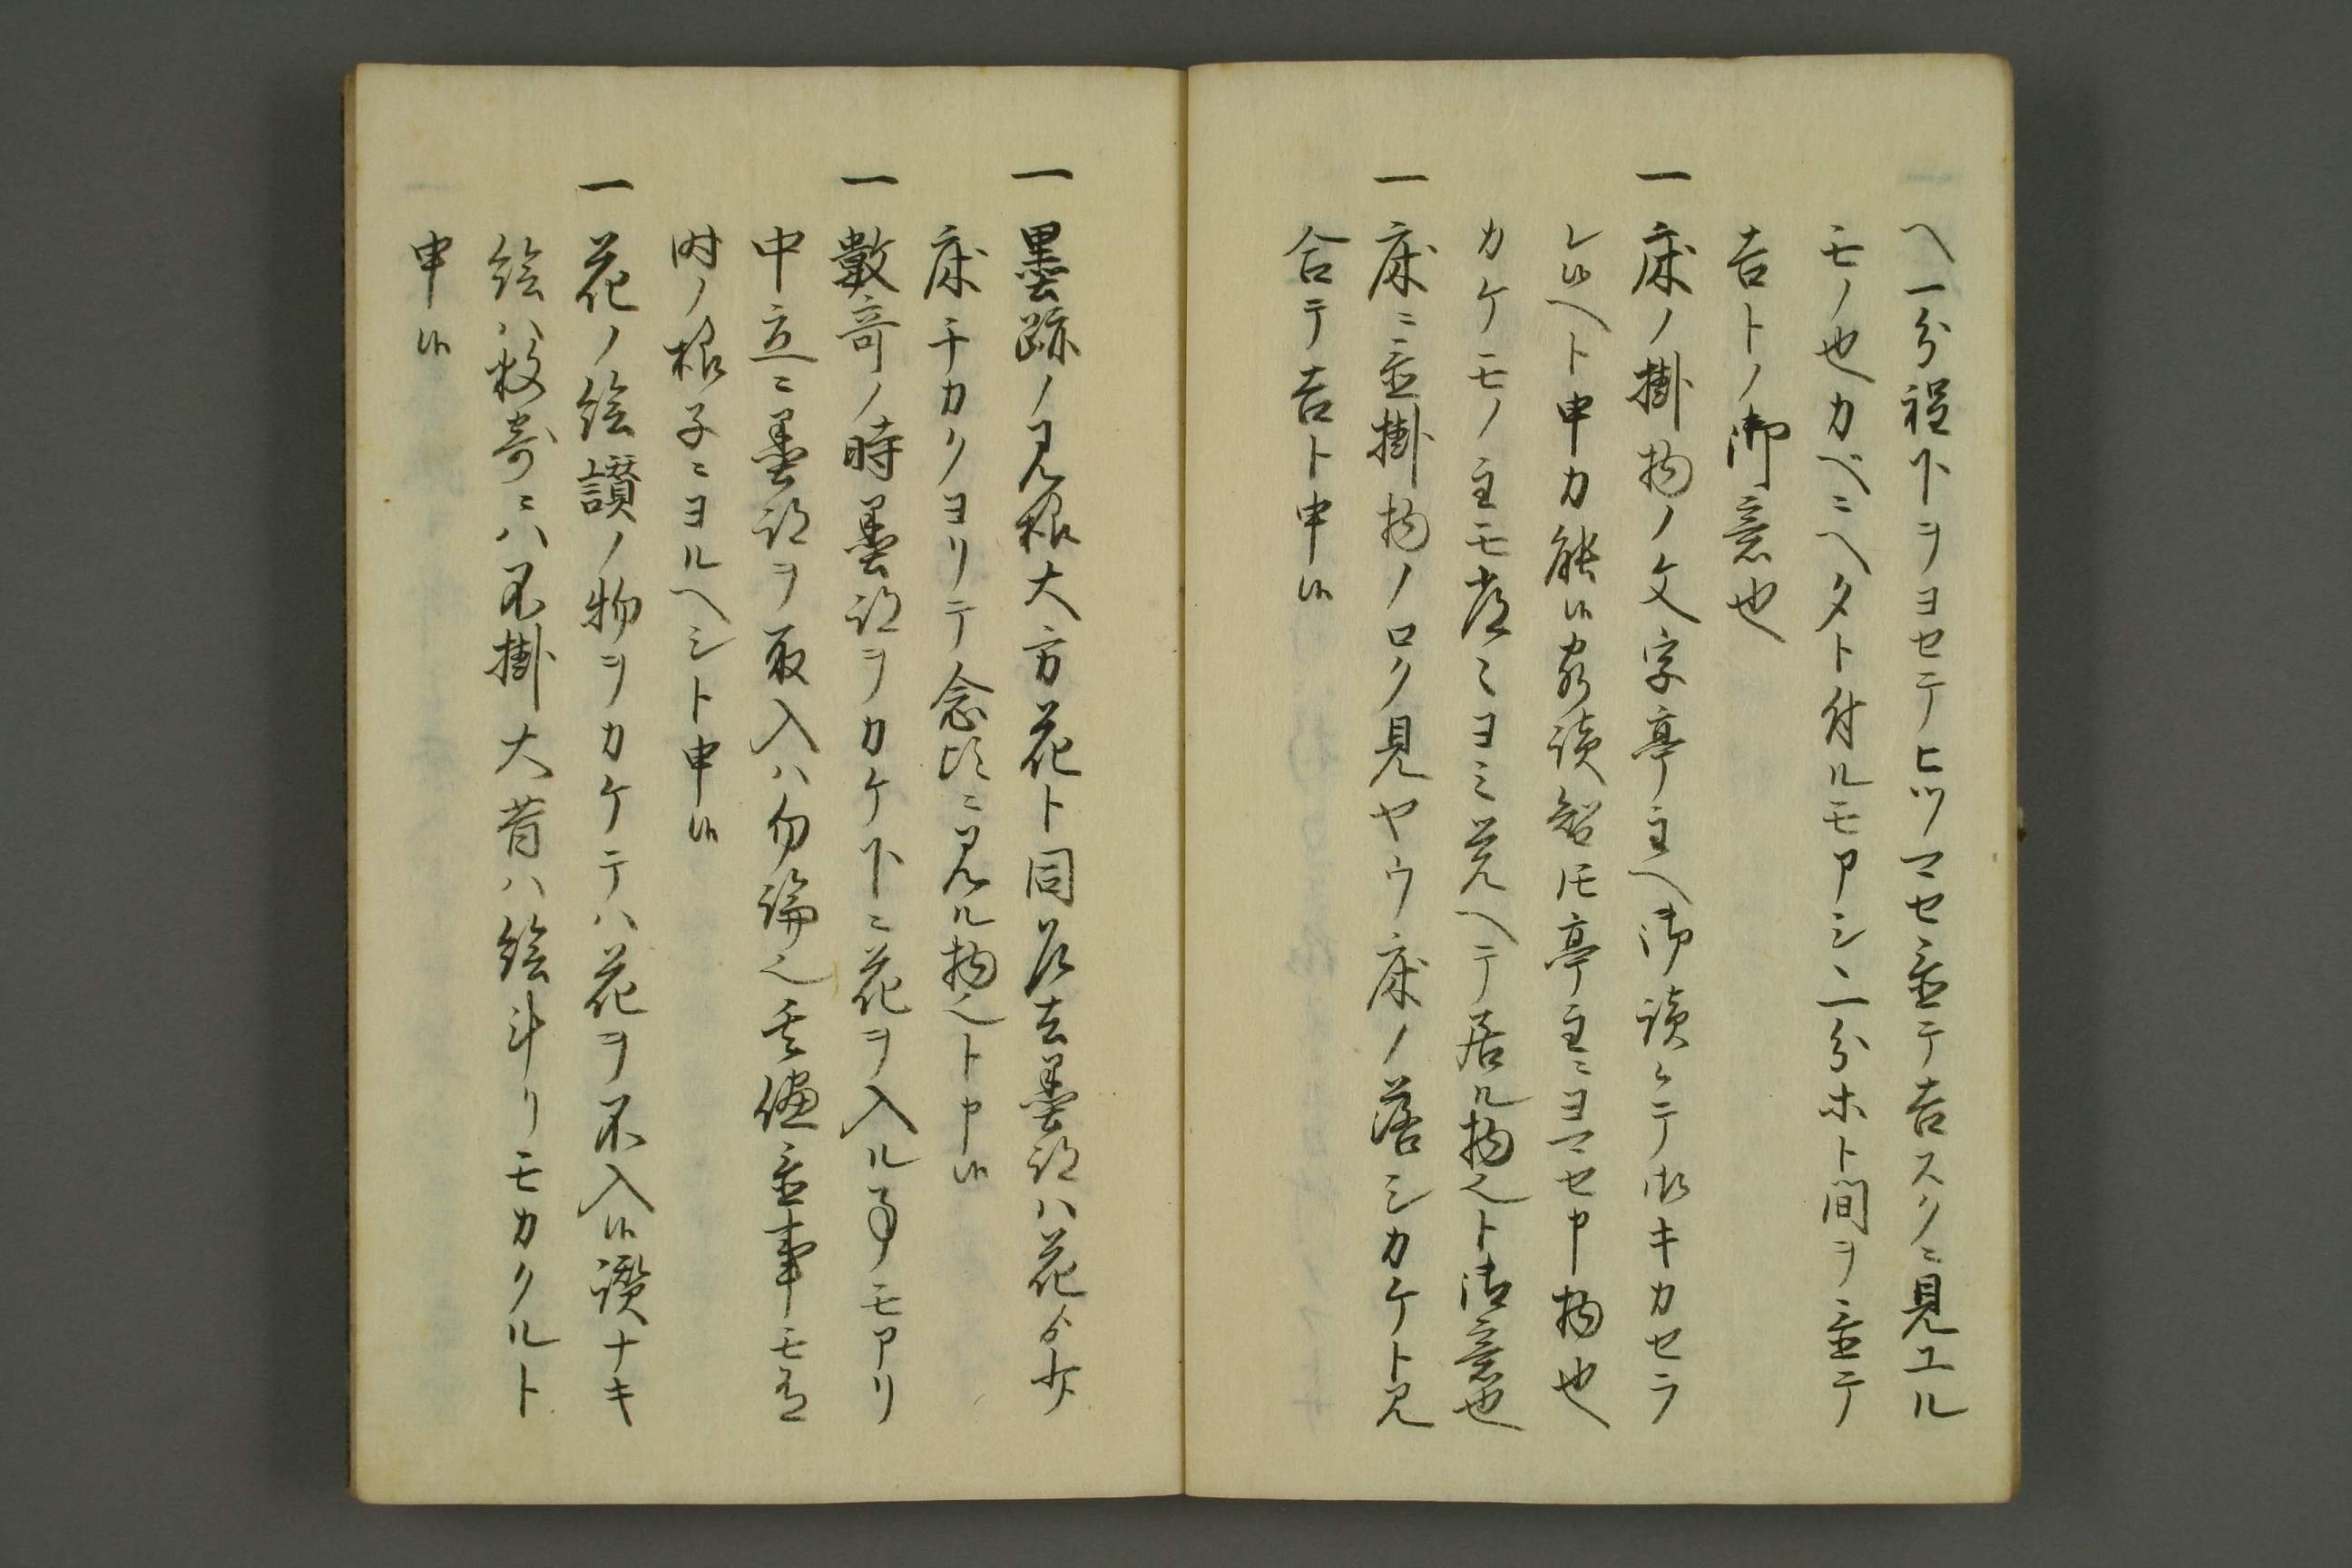 ヘ一分程下ヲヨセテヒツマセ置テ吉スクニ見ユル
モノ也カベニヘタト付ルモアシヽ一分ホト間ヲ置テ
吉トノ御意也
一床ノ掛物ノ文字亭主ヘ御読候テ御キカセラ
レ候ヘト申カ能候客読智𪜈亭主ニヨマセ申物也
カケモノ主モ常ニヨミ覚ヘテ居ル物也ト御意也
一床ニ置掛物ノロク見ヤウ床ノ落シカケト見
合テ吉ト申候
一墨跡ノ見様大方花ト同前去墨跡ハ花ゟ少
床チカクヨリテ念比ニ見ル物也ト申候
一數竒ノ時墨跡ヲカケ下ニ花ヲ入ル事モアリ
中立ニ墨跡ヲ取入ハ勿論也其儘置事モ有
時ノ様子ニヨルヘシト申候
一花ノ絵讃ノ物ヲカケテハ花ヲ不入候讃ナキ
絵ハ数寄ニハ不掛大昔ハ絵斗リモカクルト
申候